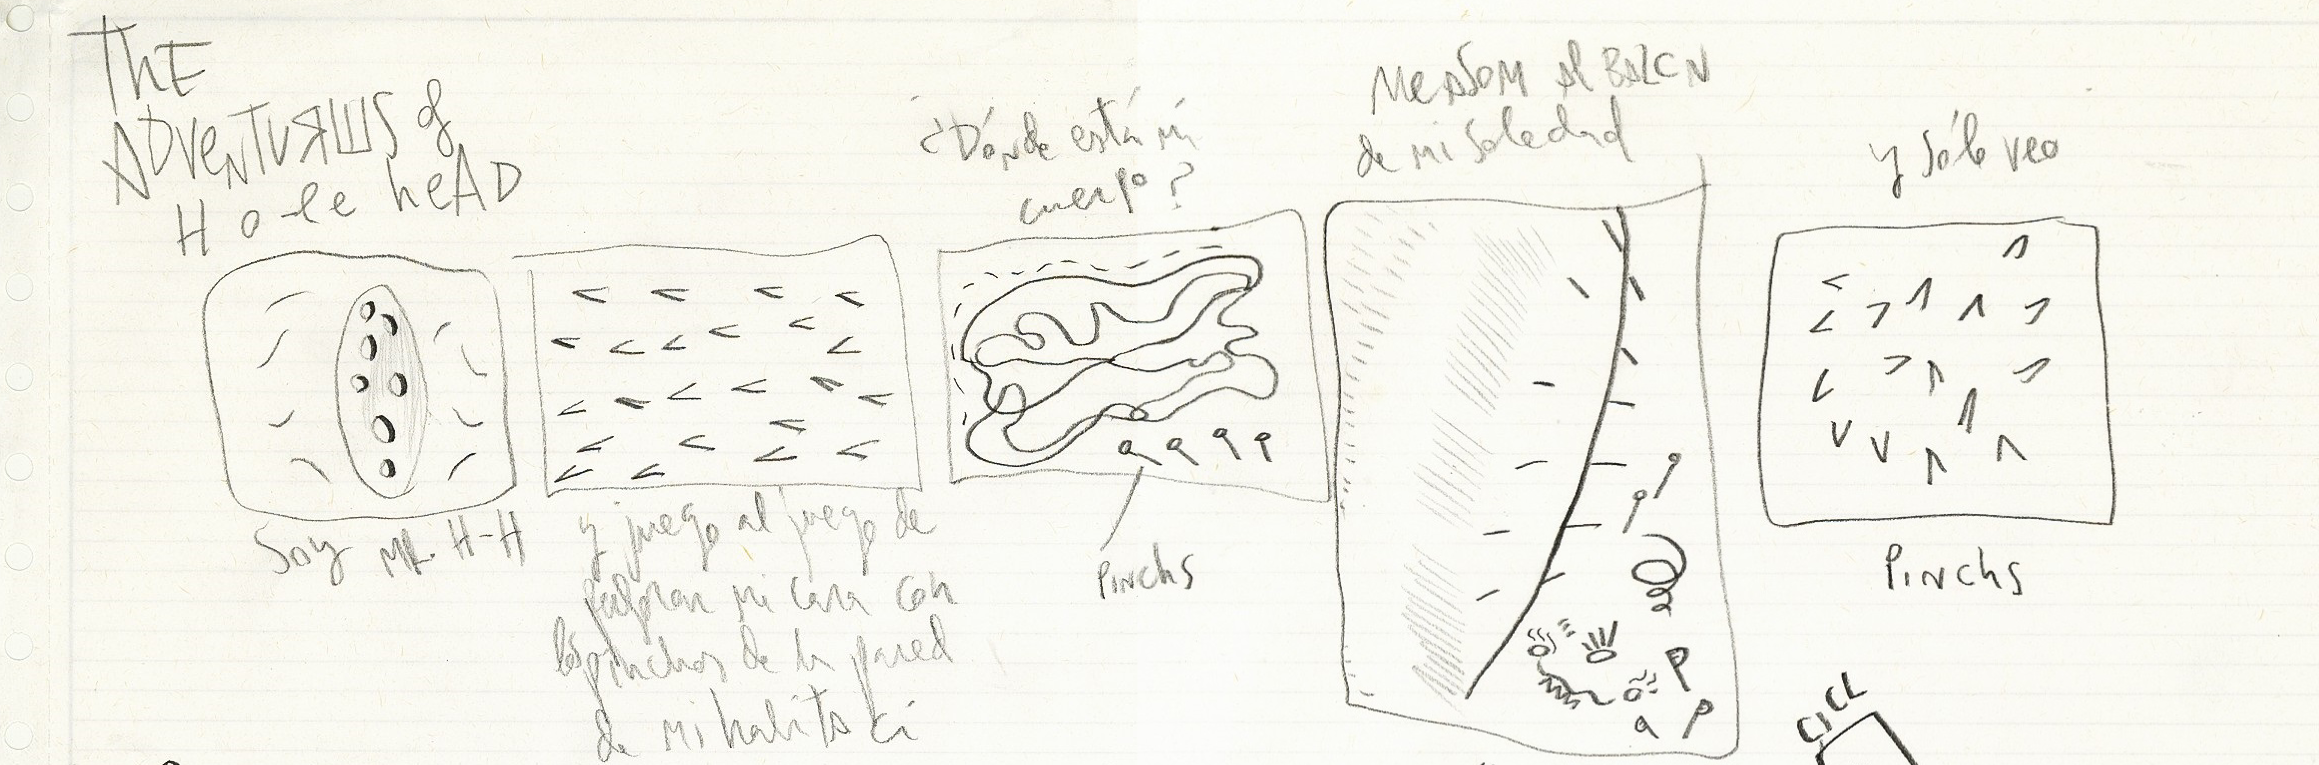 ThE
ADVeNTURES of
Hole heAD
Soy MR. H-H
y juego al juego de
mi cara con
los pinchos de la pared
de mi habitaci
¿Dónde está mi
cuerpo?
PiNchS
Me ASOM al BALCN
de mi Soledad
y Sólo veo
PiNchS
CiCL